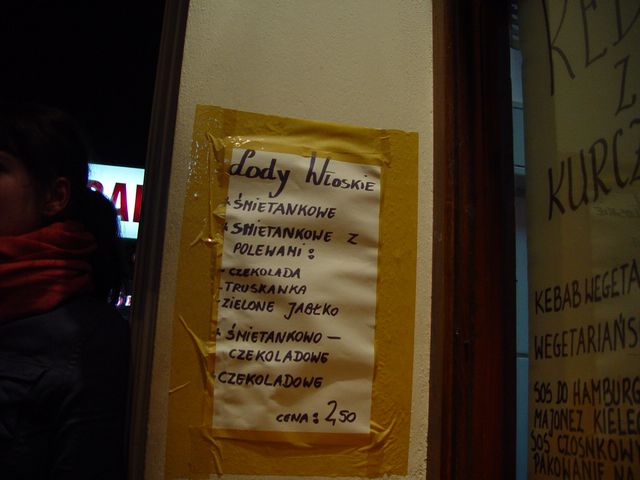 Lody Włoskie
* ŚMIETANKOWE
* ŚMIETANKOWE Z
POLEWAMI:
- CZEKOLADA
- TRUSKAWKA
- ZIELONE JABŁKO
* ŚMIETANKOWO –
CZEKOLADOWE
* CZEKOLADOWE
CENA: 2,50
Z
KURCZ
KEBAB WEGETA
WEGETARIAŃS
SOS DO HAMBURG
MAJONEZ KIELE
SOS CZOSNKOW
PAKOWANIE NA